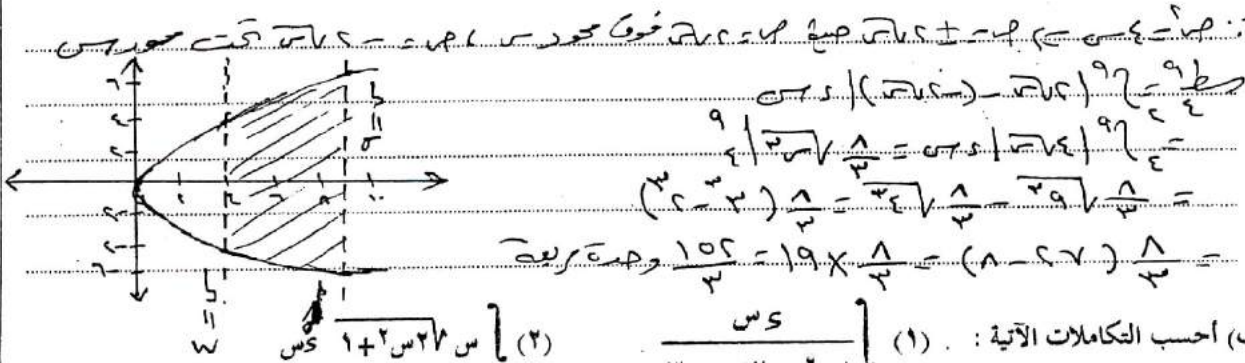 ∴ ص² = ٤س ⇒ ص = ± ٢√س حيث ص = ٢√س فوق محور س ، ص = -٢√س تحت محور س
= ٤∫٩ |٢√س - (-٢√س)| ءس
= ٤∫٩ |٤√س| ءس = ٨/٣ √س٣ |٤ ٩
= ٨/٣ √٩٣ - ٨/٣ √٤٣ = ٨/٣ (٣٣ - ٢٣)
= ٨/٣ (٢٧ - ٨) = ٨/٣ × ١٩ = ١٥٢/٣ وحدة مربعة
٦ ٤ ٢ ٢ ٤ ٦ ٨ ١٠
أحسب التكاملات الآتية : (١) ∫ ءس (٢) ∫ س √٢س٢+١ ءس